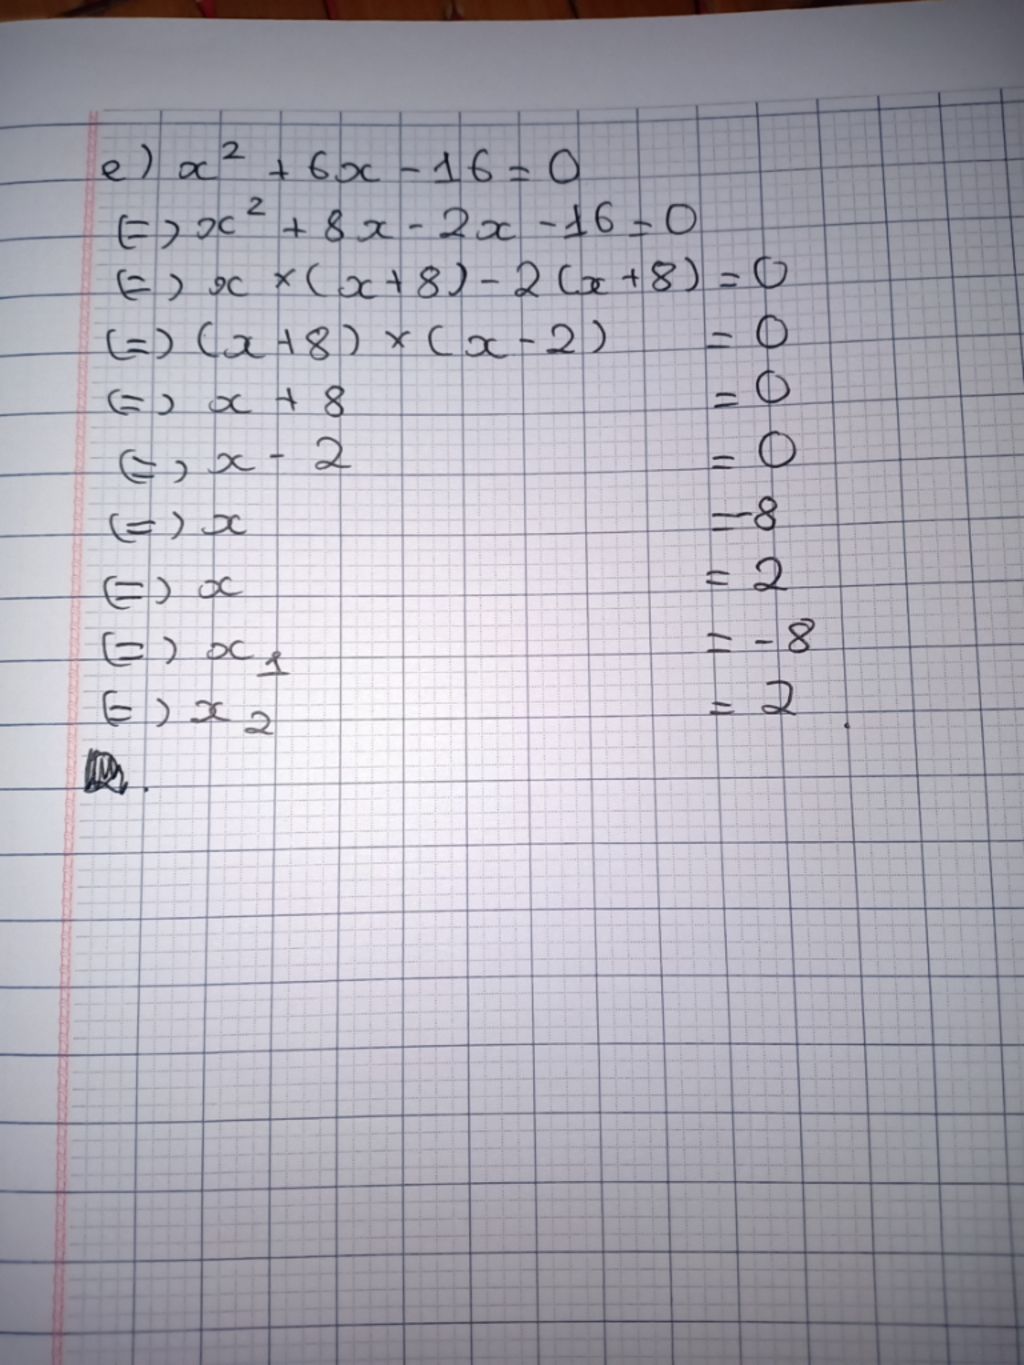 e) x² + 6x - 16 = 0
(=) x² + 8x - 2x - 16 = 0
(=) x × (x+8) - 2(x+8) = 0
(=) (x+8) × (x-2) = 0
(=) x + 8 = 0
(=) x - 2 = 0
(=) x = -8
(=) x = 2
(=) x₁ = -8
(=) x₂ = 2.